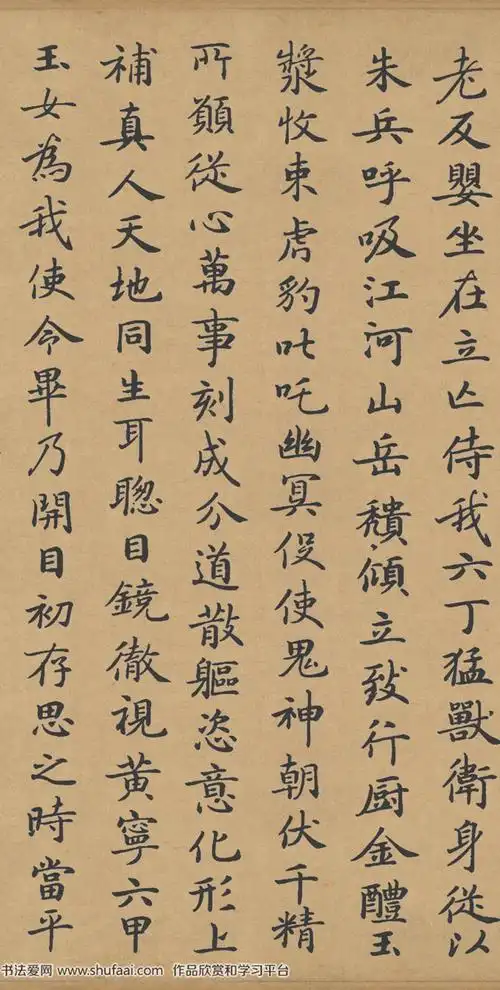 老反嬰坐在立亡侍我六丁猛獸衛身從以
朱兵呼吸江河山岳穨傾立致行厨金醴玉
漿收束虎豹叱吒幽冥促使鬼神朝伏千精
所願從心萬事刻成分道散軀恣意化形上
補真人天地同生耳聰目鏡徹視黃寧六甲
玉女為我使令畢乃開目初存思之時當平
书法爱网 www.shufaai.com 作品欣赏和学习平台